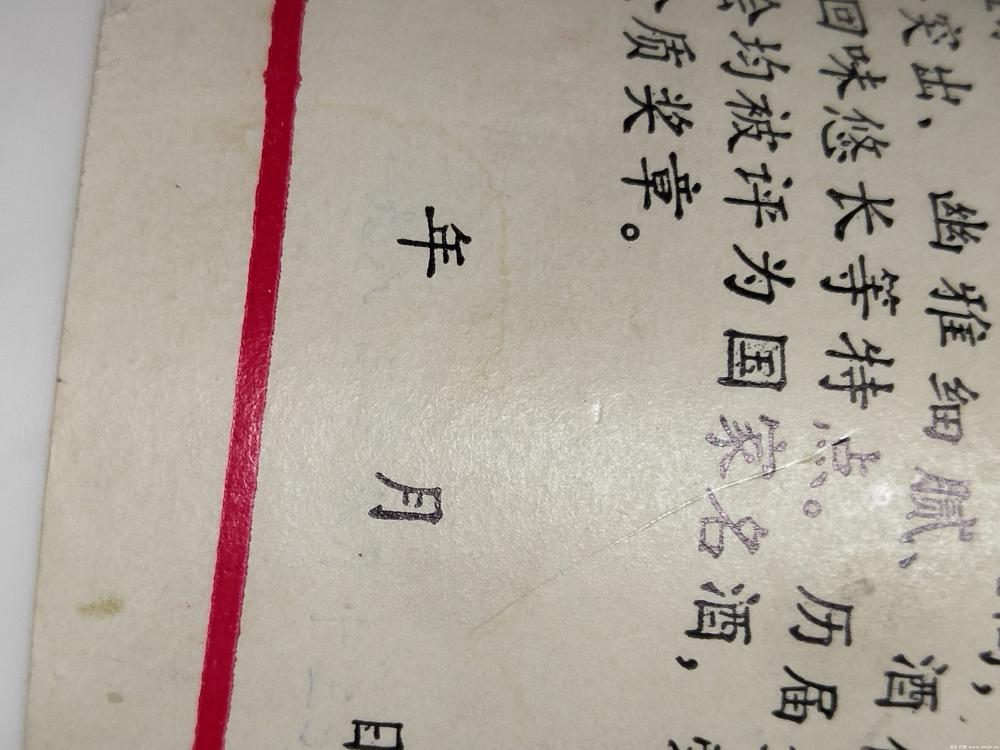 突出，幽雅细腻、酒
回味悠长等特点。历届
会均被评为国家名酒，
质奖章。
年 月 日